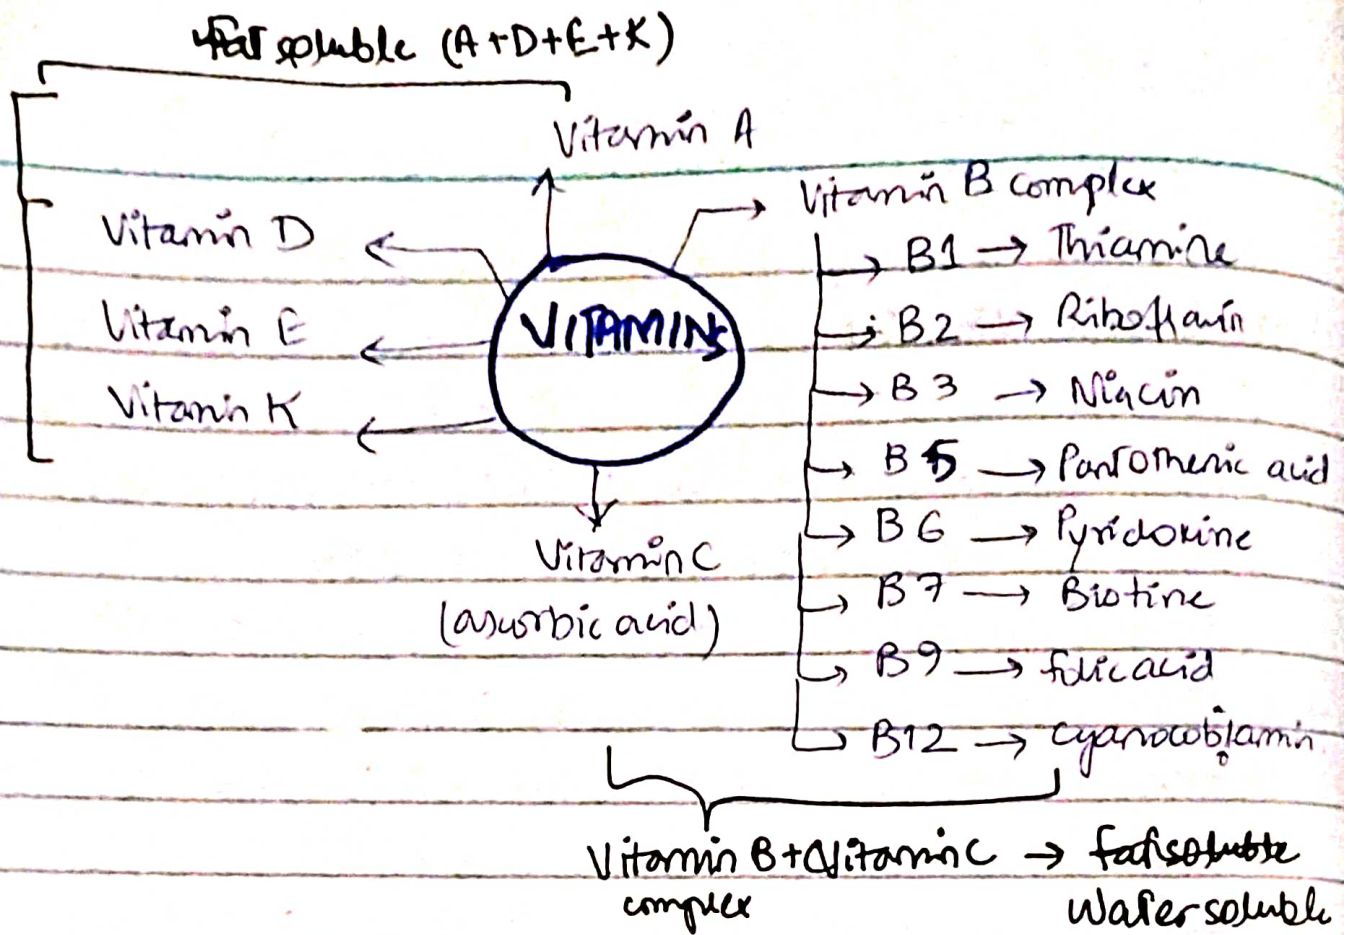 Fat soluble (A+D+E+K)
Vitamin A
Vitamin D
Vitamin E
Vitamin K
VITAMINS
Vitamin C
(ascorbic acid)
Vitamin B complex
B1 → Thiamine
B2 → Riboflavin
B3 → Niacin
B5 → Pantothenic acid
B6 → Pyridoxine
B7 → Biotine
B9 → folic acid
B12 → cyanocoblamin
Vitamin B + Vitamin C → fat soluble
complex
Water soluble